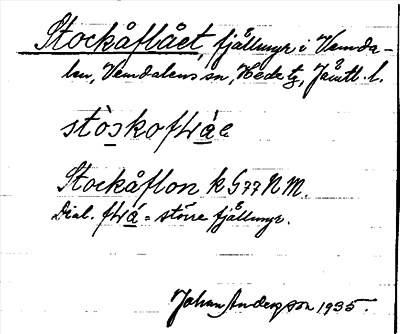 Stockåflået, fjällmyr i Vemda-
len, Vemdalens sn, Hede tg, Jämtl. l.
stòskoflɑ́e
Stockåflon k G77 N M.
Dial. flɑ́ = större fjällmyr.
Johan Andersson 1935.